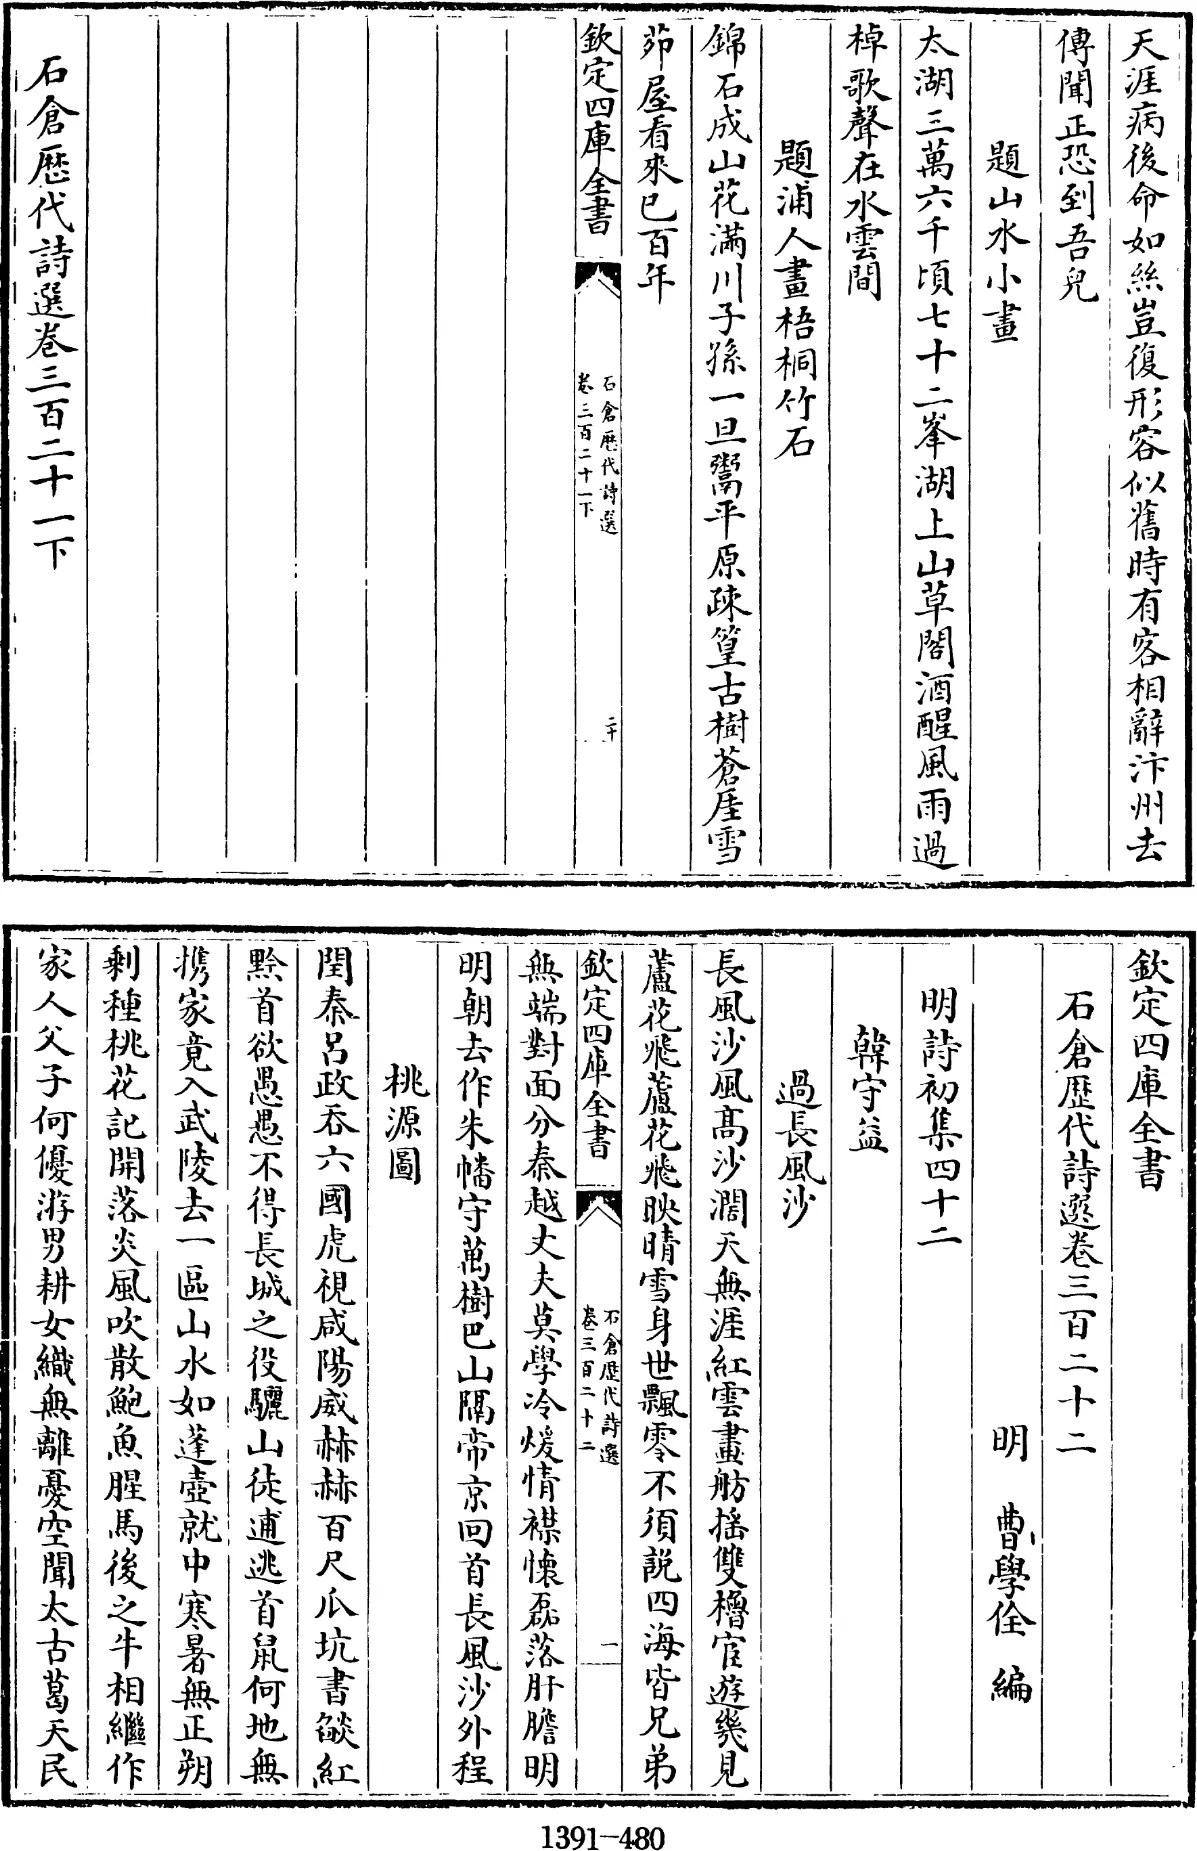 天涯病後命如絲豈復形容似舊時有客相辭汴州去
傳聞正恐到吾兒
題山水小畫
太湖三萬六千頃七十二峯湖上山草閣酒醒風雨過
棹歌聲在水雲間
題浦人畫梧桐竹石
錦石成山花滿川子孫一旦鬻平原疎篁古樹蒼厓雪
茆屋看來已百年
欽定四庫全書
石倉歷代詩選
卷三百二十一下
二十
石倉歷代詩選卷三百二十一下
欽定四庫全書
石倉歷代詩選卷三百二十二
明 曹學佺 編
明詩初集四十二
韓守益
過長風沙
長風沙風髙沙濶天無涯紅雲畫舫揺雙櫓宦遊幾見
蘆花飛蘆花飛映晴雪身世飄零不須説四海皆兄弟
欽定四庫全書
石倉歷代詩選
卷三百二十二
一
無端對面分秦越丈夫莫學冷煖情襟懷磊落肝膽明
明朝去作朱幡守萬樹巴山隔帝京回首長風沙外程
桃源圖
閏秦呂政吞六國虎視咸陽威赫赫百尺爪坑書燄紅
黔首欲愚愚不得長城之役驪山徒逋逃首䑕何地無
携家竟入武陵去一區山水如蓬壺就中寒暑無正朔
剰種桃花記開落炎風吹散鮑魚腥馬後之牛相繼作
家人父子何優游男耕女織無離憂空聞太古葛天民
1391-480